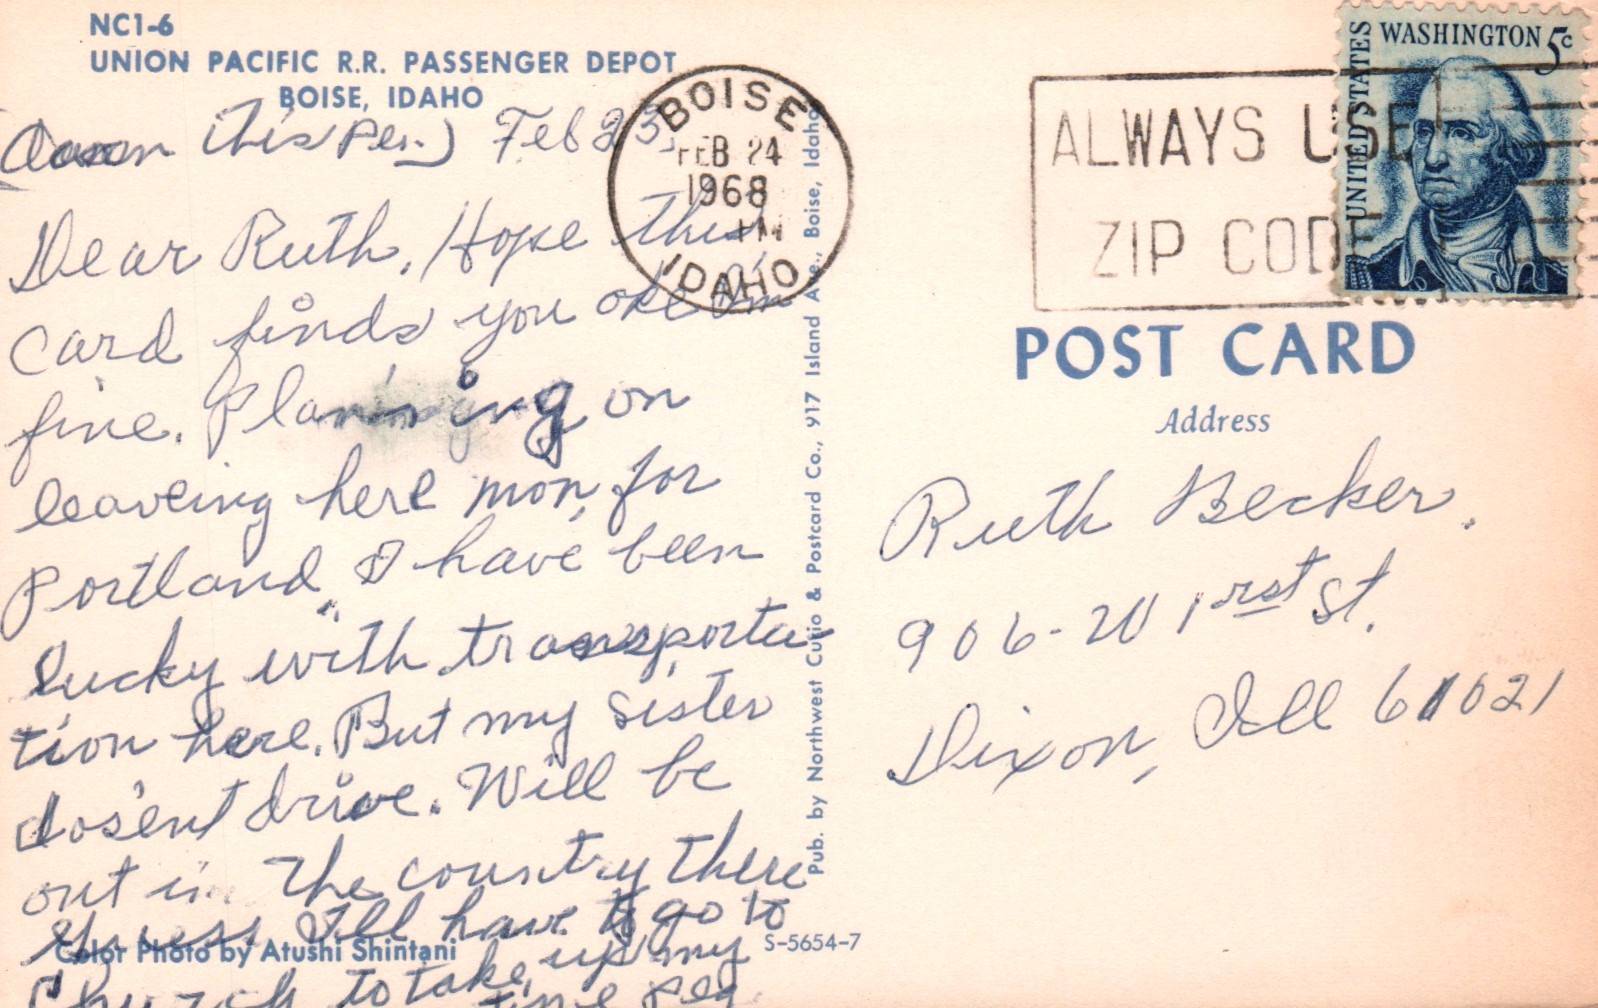 NC1-6
UNION PACIFIC R.R. PASSENGER DEPOT
BOISE, IDAHO
this Pen.) Feb 23,
Dear Ruth, Hope this
card finds you oke I'm
fine. Planning on
leaveing here mon, for
Portland I have been
lucky with transporta
tion here. But my sister
dosent drive. Will be
out in the country there
Guess I'll have to go to
Church to take up my
time Reg.
Color Photo by Atushi Shintani
S-5654-7
Pub. by Northwest Curio & Postcard Co., 917 Island Ave., Boise, Idaho
BOISE
FEB 24
1968
IDAHO
ALWAYS USE
ZIP CODE
UNITED STATES
WASHINGTON 5c
POST CARD
Address
Ruth Becker.
906-W 1rst St.
Dixon, Ill 61021